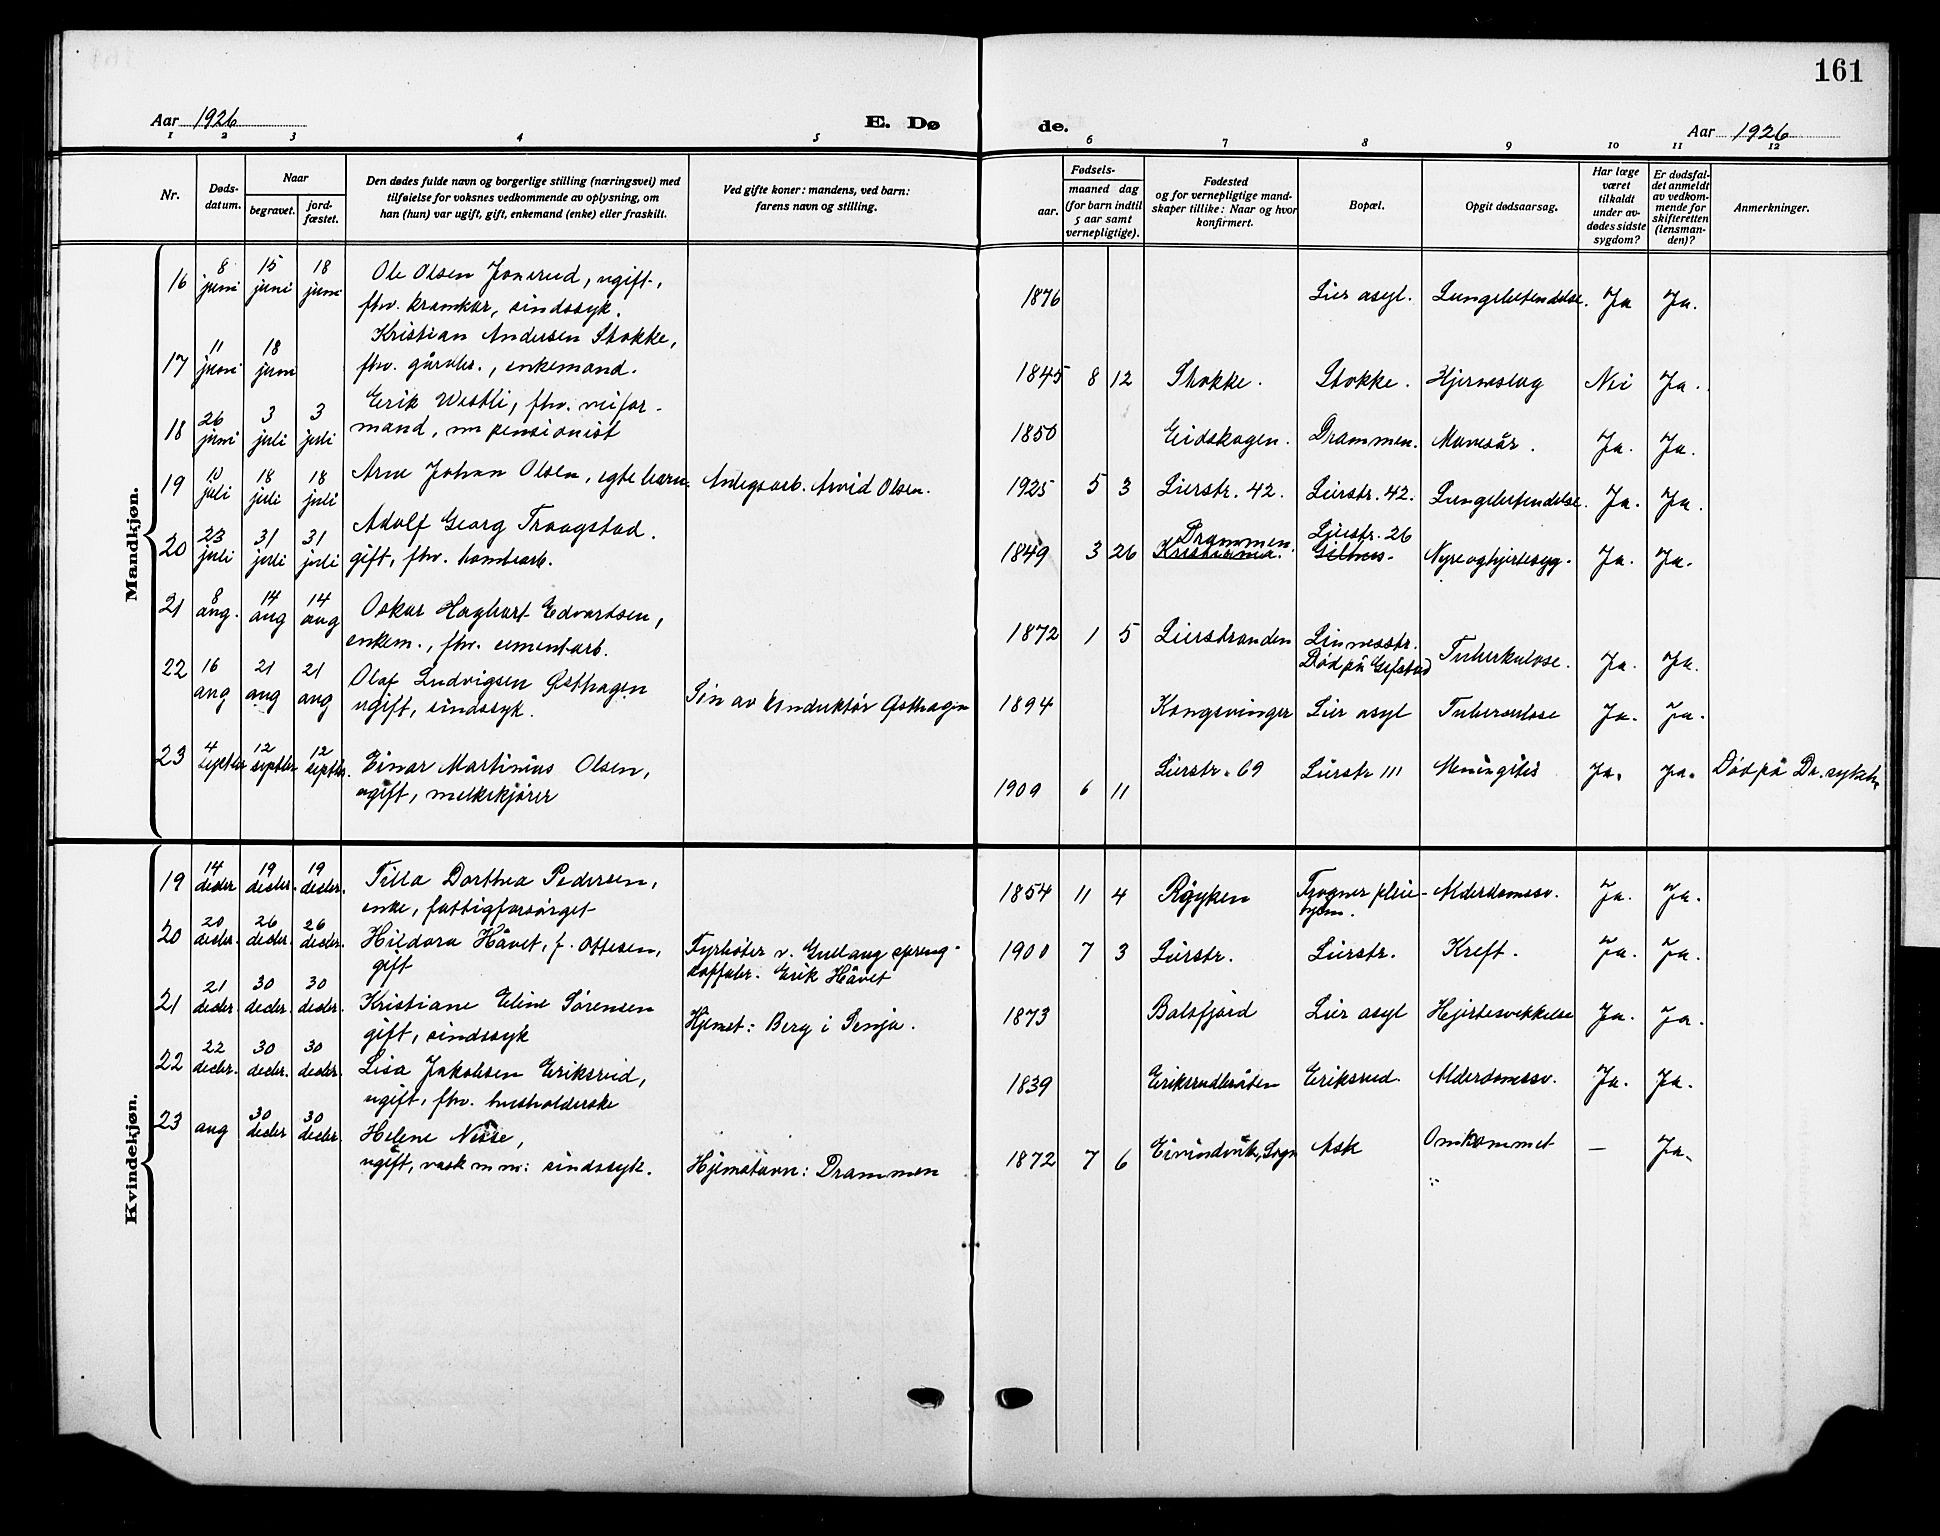 161
Aar 1926
E. Dø
de.
Aar 1926
1 2 3 4 5 6 7 8 9 10 11 12
Nr.
Døds-
datum.
Naar
begravet.
jord-
fæstet.
Den dødes fulde navn og borgerlige stilling (næringsvei) med
tilføielse for voksnes vedkommende av oplysning, om
han (hun) var ugift, gift, enkemand (enke) eller fraskilt.
Ved gifte koner: mandens, ved barn:
farens navn og stilling.
Fødsels-
aar.
maaned dag
(for barn indtil
5 aar samt
vernepligtige).
Fødested
og for vernepligtige mand-
skaper tillike: Naar og hvor
konfirmert.
Bopæl.
Opgit dødsaarsag.
Har læge
været
tilkaldt
under av-
dødes sidste
sygdom?
Er dødsfal-
det anmeldt
av vedkom-
mende for
skifteretten
(lensman-
den)?
Anmerkninger.
Mandkjøn.
16 8 juni 15 juni 18 juni Ole Olsen Jonsrud, ugift,
fhv. kramkar, sindssyk.
1876 Lier asyl. Lungebetendelse. Ja Ja.
17 11 juni 18 juni Kristian Andersen Stokke,
fhv. gårdbr., enkemand.
1845 8 12 Stokke. Stokke. Hjerneslag Nei Ja.
18 26 juni 3 juli 3 juli Erik Westli, fhv. veifor-
mand, nu pensionist
1850 Eidskogen. Drammen. Mavesår. Ja. Ja.
19 10 juli 18 juli 18 juli Arne Johan Olsen, egte barn. Anlegsarb. Arvid Olsen.
1925 5 3 Lierstr. 42. Lierstr. 42. Lungebetendelse. Ja. Ja.
20 23 juli 31 juli 31 juli Adolf Georg Traagstad.
gift, fhv. tomtearb.
1849 3 26 Drammen. Kristiania. Lierstr. 26 Gilhus. Nyre og hjertesyg. Ja. Ja.
21 8 aug. 14 aug 14 aug Oskar Hagbart Edvardsen,
enkem., fhv. cementarb.
1872 1 5 Lierstranden Linnesstr.
Død på Gjestad Tuberkulose. Ja. Ja.
22 16 aug 21 aug 21 aug Olaf Ludvigsen Østhagen
ugift, sindssyk. Søn av konduktør Østhagen
1894 Kongsvinger Lier asyl Tuberculose Ja. Ja.
23 4 septbr 12 septbr 12 septbr. Einar Martinius Olsen,
ugift, melkekjører
1909 6 11 Lierstr. 69 Lierstr 111 Meningites Ja. Ja. Død på Dr. sykeh.
Kvindekjøn.
19 14 decbr 19 decbr. 19 decbr. Tilla Dorthea Pedersen,
enke, fattigforsørget
1854 11 4 Røyken Frogner pleie-
hjem. Alderdomssv. Ja. Ja.
20 20 decbr. 26 decbr. 26 decbr. Hildora Håvet, f. Ottesen,
gift Fyrbøter v. Gullaug spreng-
stoffabr. Erik Håvet
1900 7 3 Lierstr. Lierstr. Kreft. Ja. Ja.
21 21 decbr. 30 decbr. 30 decbr. Kristiane Eline Sørensen
gift, sindssyk Hjemst: Berg i Senja.
1873 Balsfjord Lier asyl Hjertesvekkelse Ja. Ja.
22 22 decbr. 30 decbr. 30 decbr. Lisa Jakobsen Eriksrud,
ugift, fhv. husholderske
1839 Eriksrudbråten Eriksrud. Alderdomssv. Ja. Ja.
23 aug 30 decbr 30 decbr. Helene Nesse,
ugift, vask m m: sindssyk. Hjemstavn: Drammen
1872 7 6 Eivindvik, Sogn Ask Omkommet — Ja.